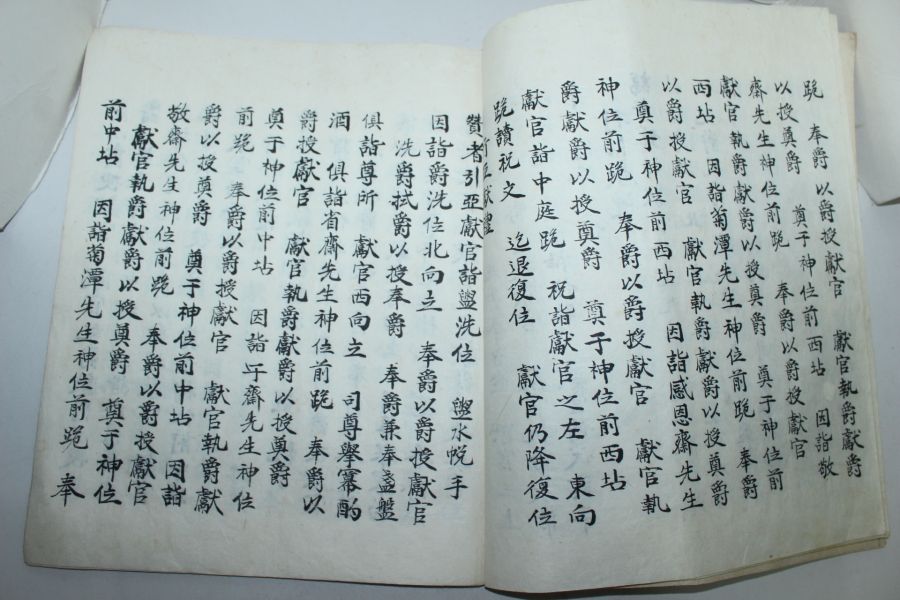 跪 奉爵以授獻官 獻官執爵獻爵
以授奠爵 奠于神位前西坫 因詣敬
齋先生神位前跪 奉爵以授獻官
獻官執爵獻爵以授奠爵 奠于神位前
西坫 因詣菊潭先生神位前跪 奉爵
以爵授獻官 獻官執爵獻爵以授奠爵
奠于神位前西坫 因詣感恩齋先生
神位前跪 奉爵以爵授獻官 獻官執
爵獻爵以授奠爵 奠于神位前西坫
獻官詣中庭跪 祝詣獻官之左 東向
跪讀祝文 迄退復位 獻官仍降復位
行亞獻禮
贊者引亞獻官詣盥洗位 盥水帨手
因詣爵洗位北向立 奉爵以爵授獻官
洗爵拭爵以授奉爵 奉爵兼奉盞盤
俱詣尊所 獻官西向立 司尊擧冪酌
酒 俱詣省齋先生神位前跪 奉爵以
爵授獻官 獻官執爵獻爵以授奠爵
奠于神位前中坫 因詣 齋先生神位
前跪 奉爵以爵授獻官 獻官執爵獻
爵以授奠爵 奠于神位前中坫 因詣
敬齋先生神位前跪 奉爵以爵授獻官
獻官執爵獻爵以授奠爵 奠于神位
前中坫 因詣菊潭先生神位前跪 奉